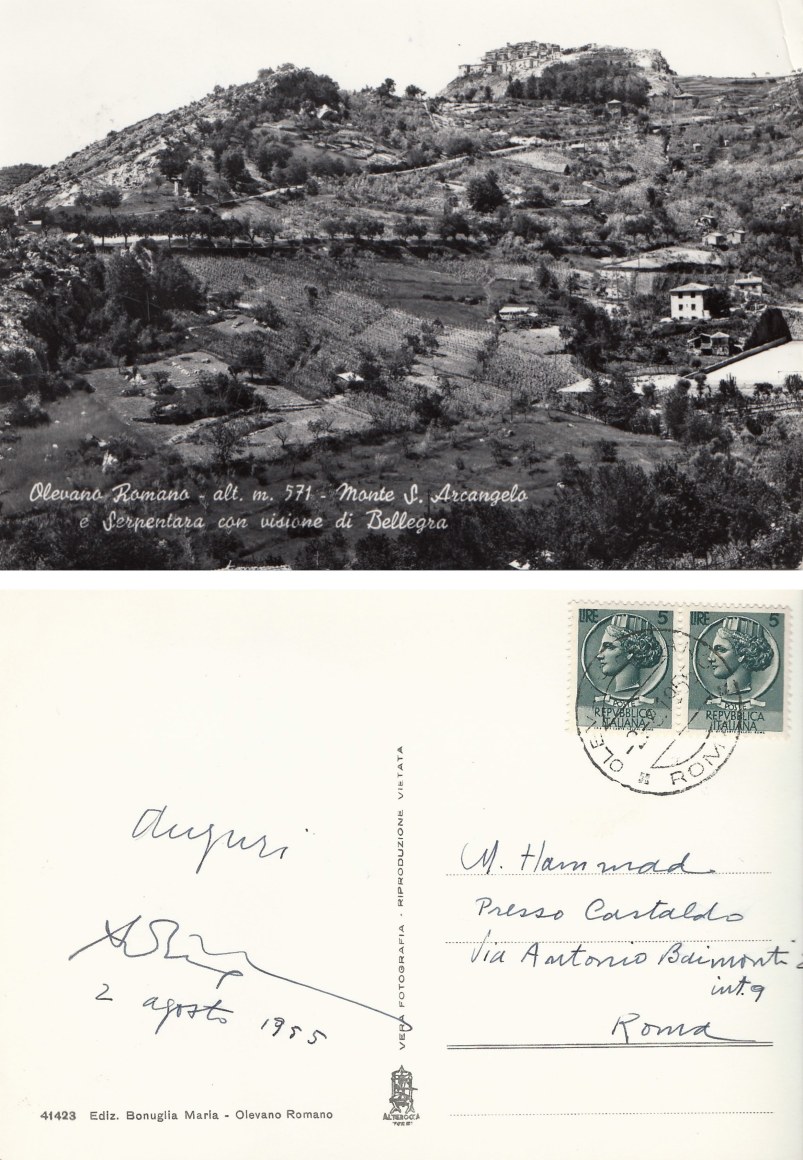 Olevano Romano - alt. m. 571 - Monte S. Arcangelo
e Serpentara con visione di Bellegra
LIRE 5
POSTE
REPVBBLICA
ITALIANA
LIRE 5
POSTE
REPVBBLICA
ITALIANA
ROM
Auguri
2 agosto 1955
VERA FOTOGRAFIA - RIPRODUZIONE VIETATA
M. Hammad
Presso Castaldo
Via Antonio Baimonti
int. 9
Roma
41423 Ediz. Bonuglia Maria - Olevano Romano
ALTEROCCA